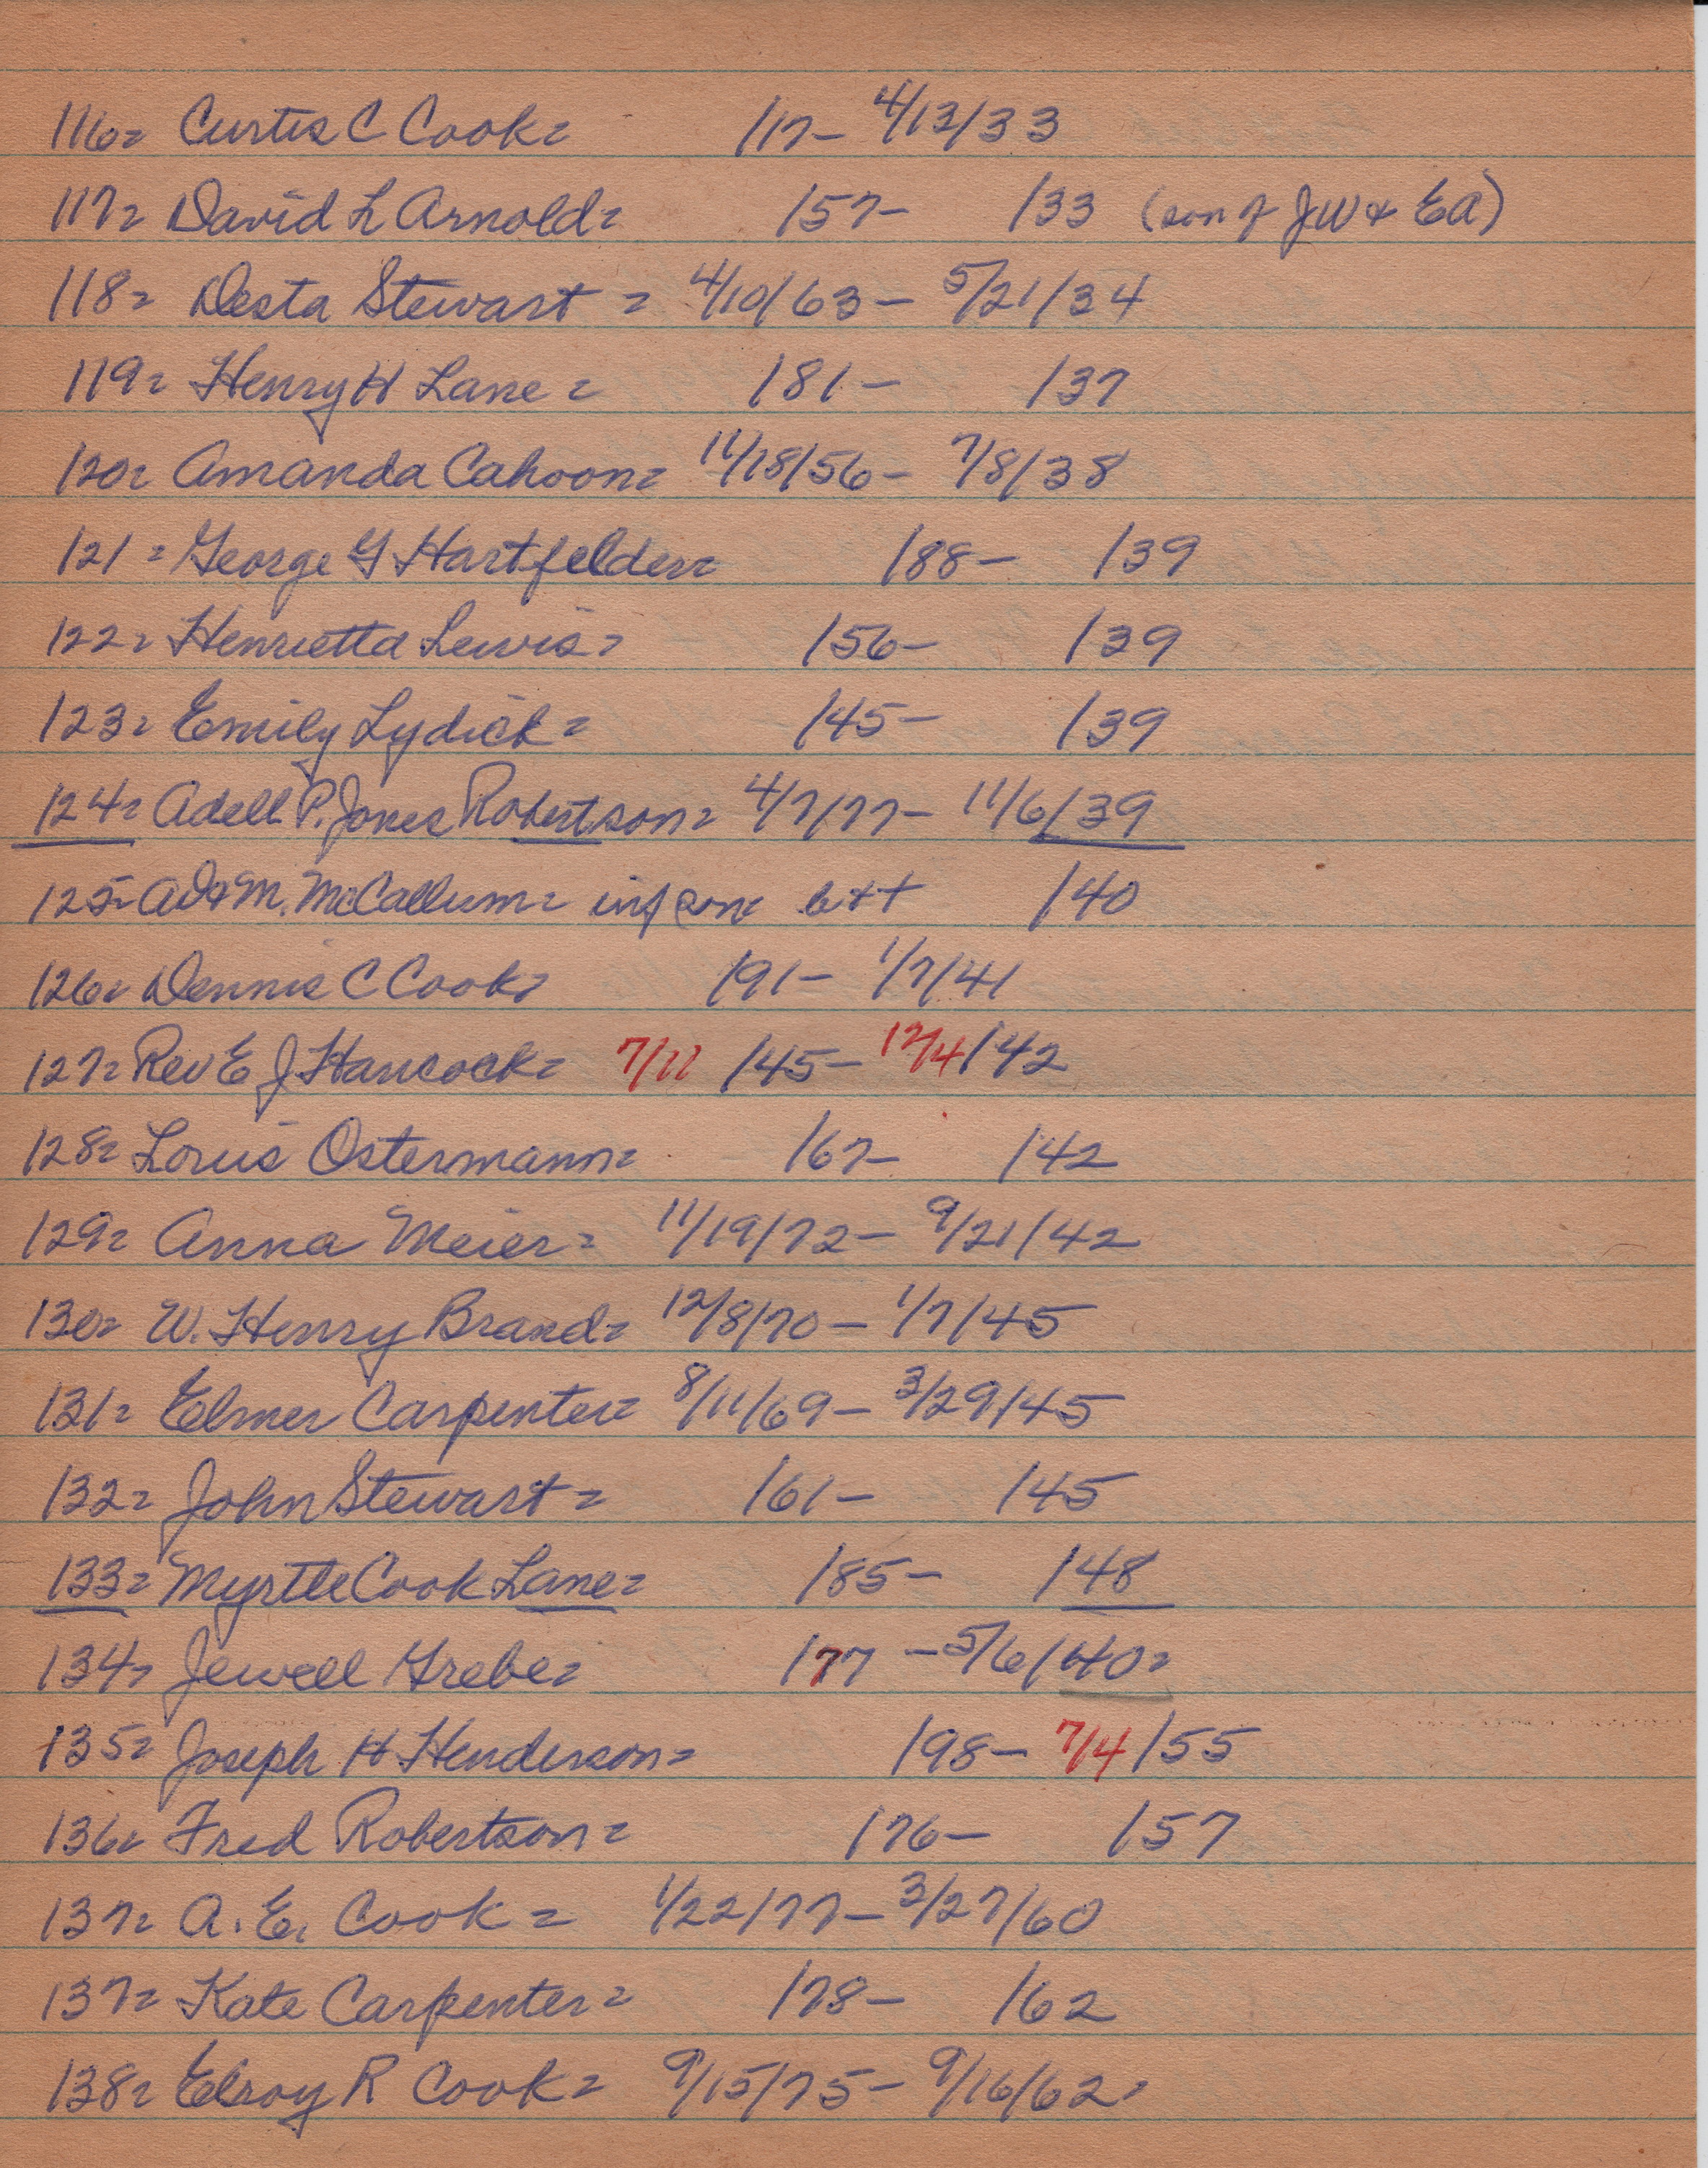 116= Curtis C Cook= /17- 4/13/33
117= David L Arnold= /57- /33 (son of JW & EA)
118= Desta Stewart = 4/10/63- 5/21/34
119= Henry H Lane = /81- /37
120= Amanda Cahoon= 11/18/56- 7/8/38
121= George G Hartfelder= /88- /39
122= Henrietta Lewis= /56- /39
123= Emily Lydick= /45- /39
124= Adell P. Jones Robertson= 4/7/77- 11/6/39
125= AD & M. McCallum= inf son b++ /40
126= Dennis C Cook= /91- 1/7/41
127= Rev E J Hancock= 7/11 /45- 12/4/42
128= Louis Ostermann= /67- /42
129= Anna Meier= 11/19/72- 9/21/42
130= W. Henry Brand= 12/8/70- 1/7/45
131= Elmer Carpenter= 8/11/69- 3/29/45
132= John Stewart= /61- /45
133= Myrtle Cook Lane= /85- /48
134= Jewell Grebe= /77 -5/6/40=
135= Joseph H Henderson= /98- 7/4/55
136= Fred Robertson= /76- /57
137= A. E. Cook= 1/22/77- 3/27/60
137= Kate Carpenter= /78- /62
138= Elroy R Cook= 9/15/75- 9/16/62=